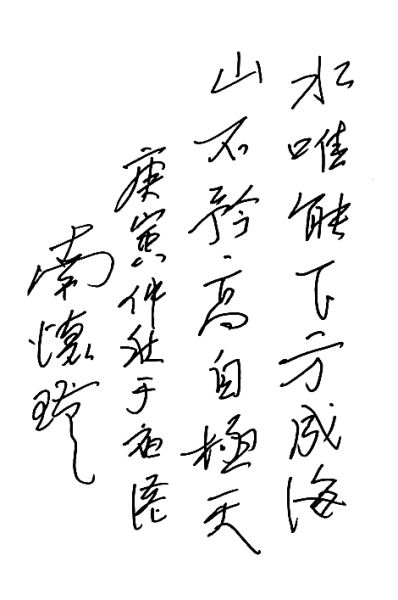 水唯能下方成海
山不矜高自極天
庚寅仲秋于香港
南懷瑾